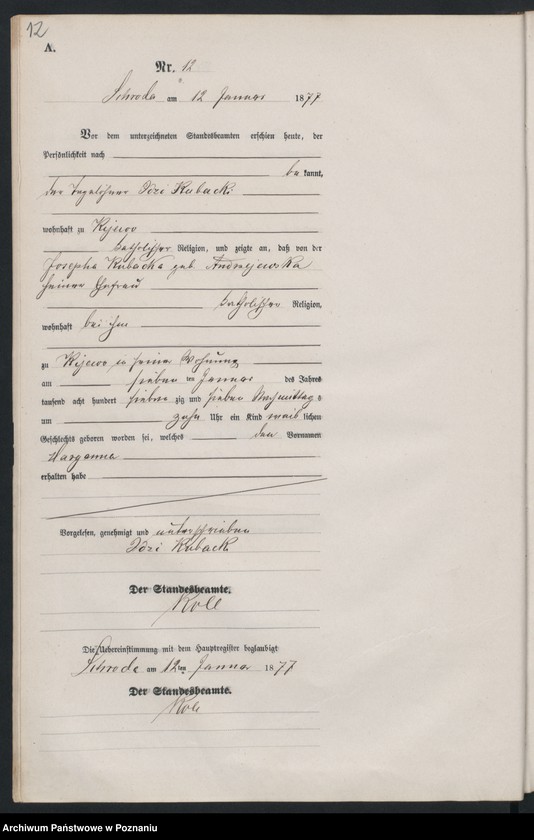 12
A.
Nr. 12
Schroda am 12 Januar 1877
Vor dem unterzeichneten Standesbeamten erschien heute, der
Persönlichkeit nach
bekannt,
der Tagelöhner Kubacki
wohnhaft zu Kijewo
katholischer Religion, und zeigte an, daß von der
Josepha Kubacka geb Andrzejewska
seiner Ehefrau
katholischer Religion,
wohnhaft bei ihm
zu Kijewo in seiner Wohnung
am sieben ten Januar des Jahres
tausend acht hundert sieben zig und sieben Nachmittags
um zehn Uhr ein Kind weib lichen
Geschlechts geboren worden sei, welches den Vornamen
Maryanna
erhalten habe
Vorgelesen, genehmigt und unterschrieben
Kubacki
Der Standesbeamte.
Die Uebereinstimmung mit dem Hauptregister beglaubigt
Schroda am 12ten Januar 1877
Der Standesbeamte.
Archiwum Państwowe w Poznaniu